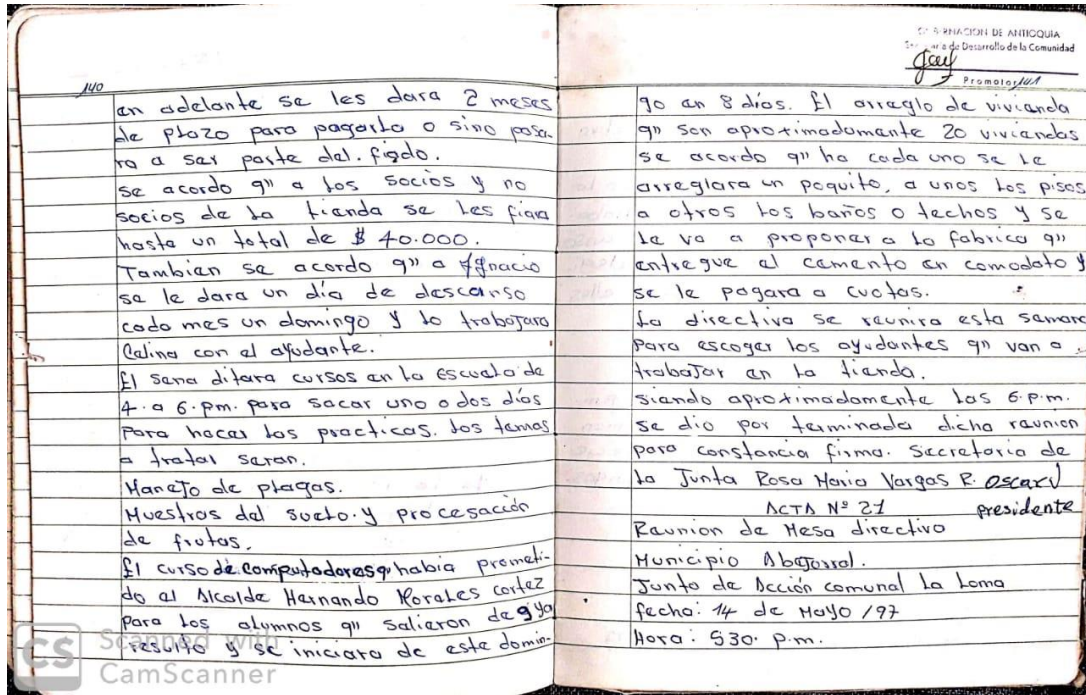 140
en adelante se les dara 2 meses
de plazo para pagarlo o sino pasa-
ra a ser parte del. fiado.
se acordo q" a los socios y no
socios de la tienda se les fiara
hasta un total de $ 40.000.
Tambien se acordo q" a Ignacio
se le dara un día de descanso
cada mes un domingo y lo trabajara
Celina con el ayudante.
El sena ditara cursos en la escuela de
4. a 6. pm. para sacar uno o dos días
para hacer las practicas. los temas
a tratar seran.
Manejo de plagas.
Muestras del suelo. y procesacción
de frutas.
El curso de computadores q" habia prometi-
do el Alcalde Hernando Morales cortez
para los alumnos q" salieron de 9 ya
resulto y se iniciara de este domin-
CS Scanned with
CamScanner
GOBERNACION DE ANTIOQUIA
de Desarrollo de la Comunidad
Promotor
141
go en 8 días. El arreglo de vivienda
q" son aproximadamente 20 viviendas
se acordo q" ha cada uno se le
arreglara un poquito, a unos los pisos
a otros los baños o techos y se
le va a proponer a la fabrica q"
entregue el cemento en comodato y
se le pagara a cuotas.
La directiva se reunira esta semana
para escoger los ayudantes q" van a
trabajar en la tienda.
siendo aproximadamente las 6. p.m.
se dio por terminada dicha reunion
para constancia firma. Secretaria de
la Junta Rosa Maria Vargas R. Oscar J
presidente
ACTA Nº 21
Reunion de Mesa directiva
Municipio Abejorral.
Junta de Acción comunal La Loma
fecha: 14 de Mayo /97
Hora: 530. p.m.